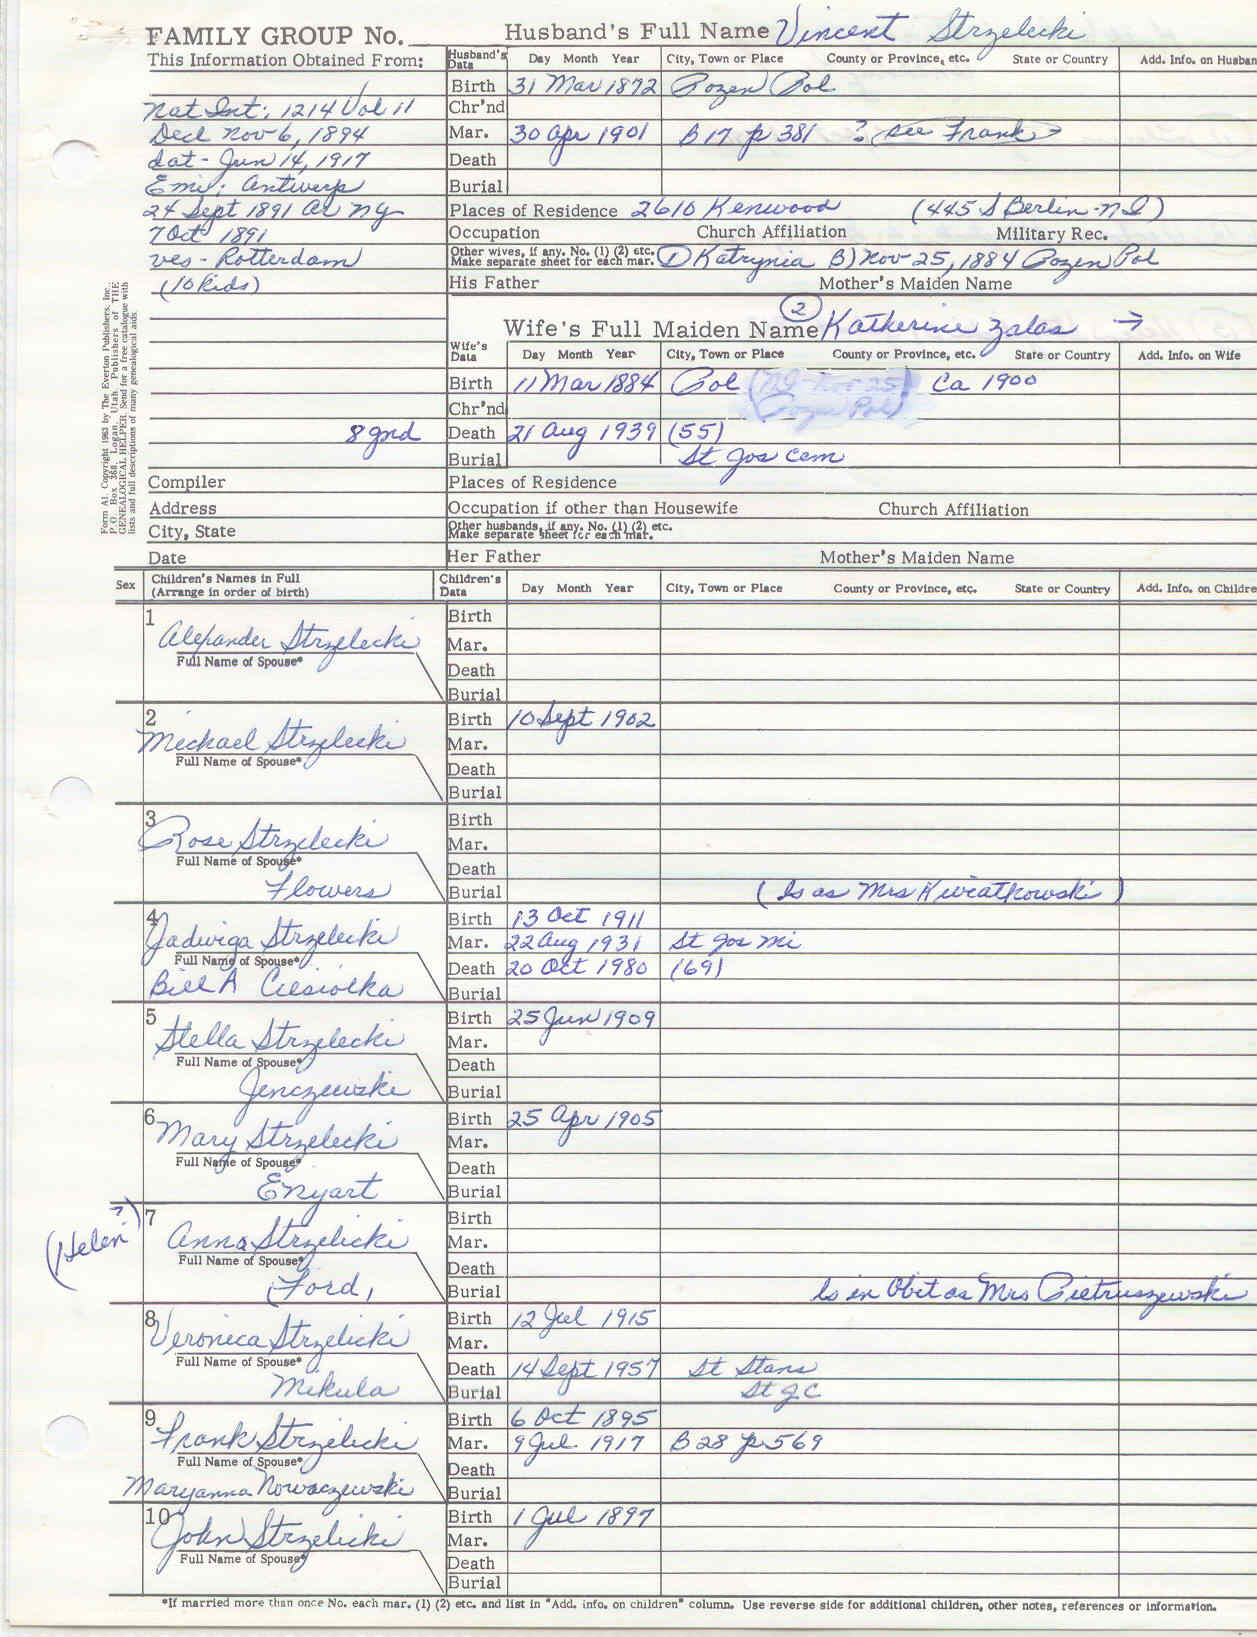 FAMILY GROUP No.
Husband's Full Name Vincent Strzelecki
This Information Obtained From:
Husband's Data Day Month Year City, Town or Place County or Province, etc. State or Country Add. Info. on Husban
Birth 31 Mar 1872 Pozen Pol
Nat Int: 1214 Vol 11
Chr'nd
Decl Nov 6, 1894
Mar. 30 Apr 1901 B 17 p 381 ? (see Frank)
dat - Jun 14, 1917
Death
Emi: Antwerp
Burial
24 Sept 1891 Ar NY
Places of Residence 2610 Kenwood (445 S Berlin - ND)
7 Oct 1891
Occupation Church Affiliation Military Rec.
ves - Rotterdam
Other wives, if any. No. (1) (2) etc. Make separate sheet for each mar. (1) Katrynia B) Nov 25, 1884 Pozen Pol
(10 kids)
His Father Mother's Maiden Name
(2)
Wife's Full Maiden Name Katherine Zalas →
Wife's Data Day Month Year City, Town or Place County or Province, etc. State or Country Add. Info. on Wife
Birth 11 Mar 1884 Pol Ca 1900
(Pozen Pol)
Chr'nd
8 gnd
Death 21 Aug 1939 (55)
Burial St Jos Cem
Form A1. Copyright 1963 by The Everton Publishers, Inc.,
P.O. Box 368, Logan, Utah. Publishers of THE
GENEALOGICAL HELPER. Send for a free catalogue with
lists and full descriptions of many genealogical aids.
Compiler
Places of Residence
Address
Occupation if other than Housewife Church Affiliation
City, State
Other husbands, if any. No. (1) (2) etc. Make separate sheet for each mar.
Date
Her Father Mother's Maiden Name
Sex Children's Names in Full (Arrange in order of birth) Children's Data Day Month Year City, Town or Place County or Province, etc. State or Country Add. Info. on Childre
1 Birth
Alexander Strzelecki Mar.
Full Name of Spouse* Death
Burial
2 Birth 10 Sept 1902
Michael Strzelecki Mar.
Full Name of Spouse* Death
Burial
3 Birth
Rose Strzelecki Mar.
Full Name of Spouse* Death
Flowers Burial (Is as Mrs Kwiatkowski)
4 Birth 13 Oct 1911
Jadwiga Strzelecki Mar. 22 Aug 1931 St Jos Mi
Full Name of Spouse* Death 20 Oct 1980 (69)
Bill A Ciesiolka Burial
5 Birth 25 Jun 1909
Stella Strzelecki Mar.
Full Name of Spouse* Death
Jenczewski Burial
6 Birth 25 Apr 1905
Mary Strzelecki Mar.
Full Name of Spouse* Death
Enyart Burial
7 Birth
(Helen ?)
Anna Strzelicki Mar.
Full Name of Spouse* Death
(Ford) Burial Is in Obit as Mrs Pietruszewski
8 Birth 12 Jul 1915
Veronica Strzelicki Mar.
Full Name of Spouse* Death 14 Sept 1957 St Stans
Mikula Burial St J C
9 Birth 6 Oct 1895
Frank Strzelicki Mar. 9 Jul 1917 B 28 p 569
Full Name of Spouse* Death
Maryanna Nowaczewski Burial
10 Birth 1 Jul 1897
John Strzelicki Mar.
Full Name of Spouse* Death
Burial
*If married more than once No. each mar. (1) (2) etc. and list in "Add. info. on children" column. Use reverse side for additional children, other notes, references or information.